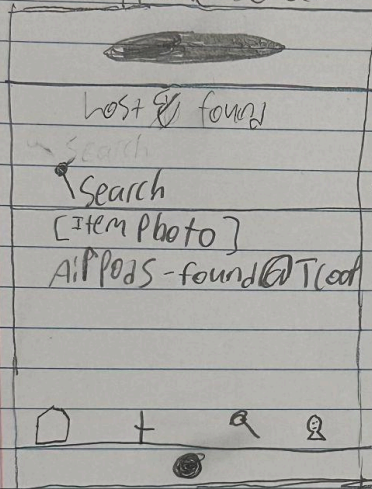 Lost & found
Search
Search
[Item Photo]
AirPods - found @ Tcoof